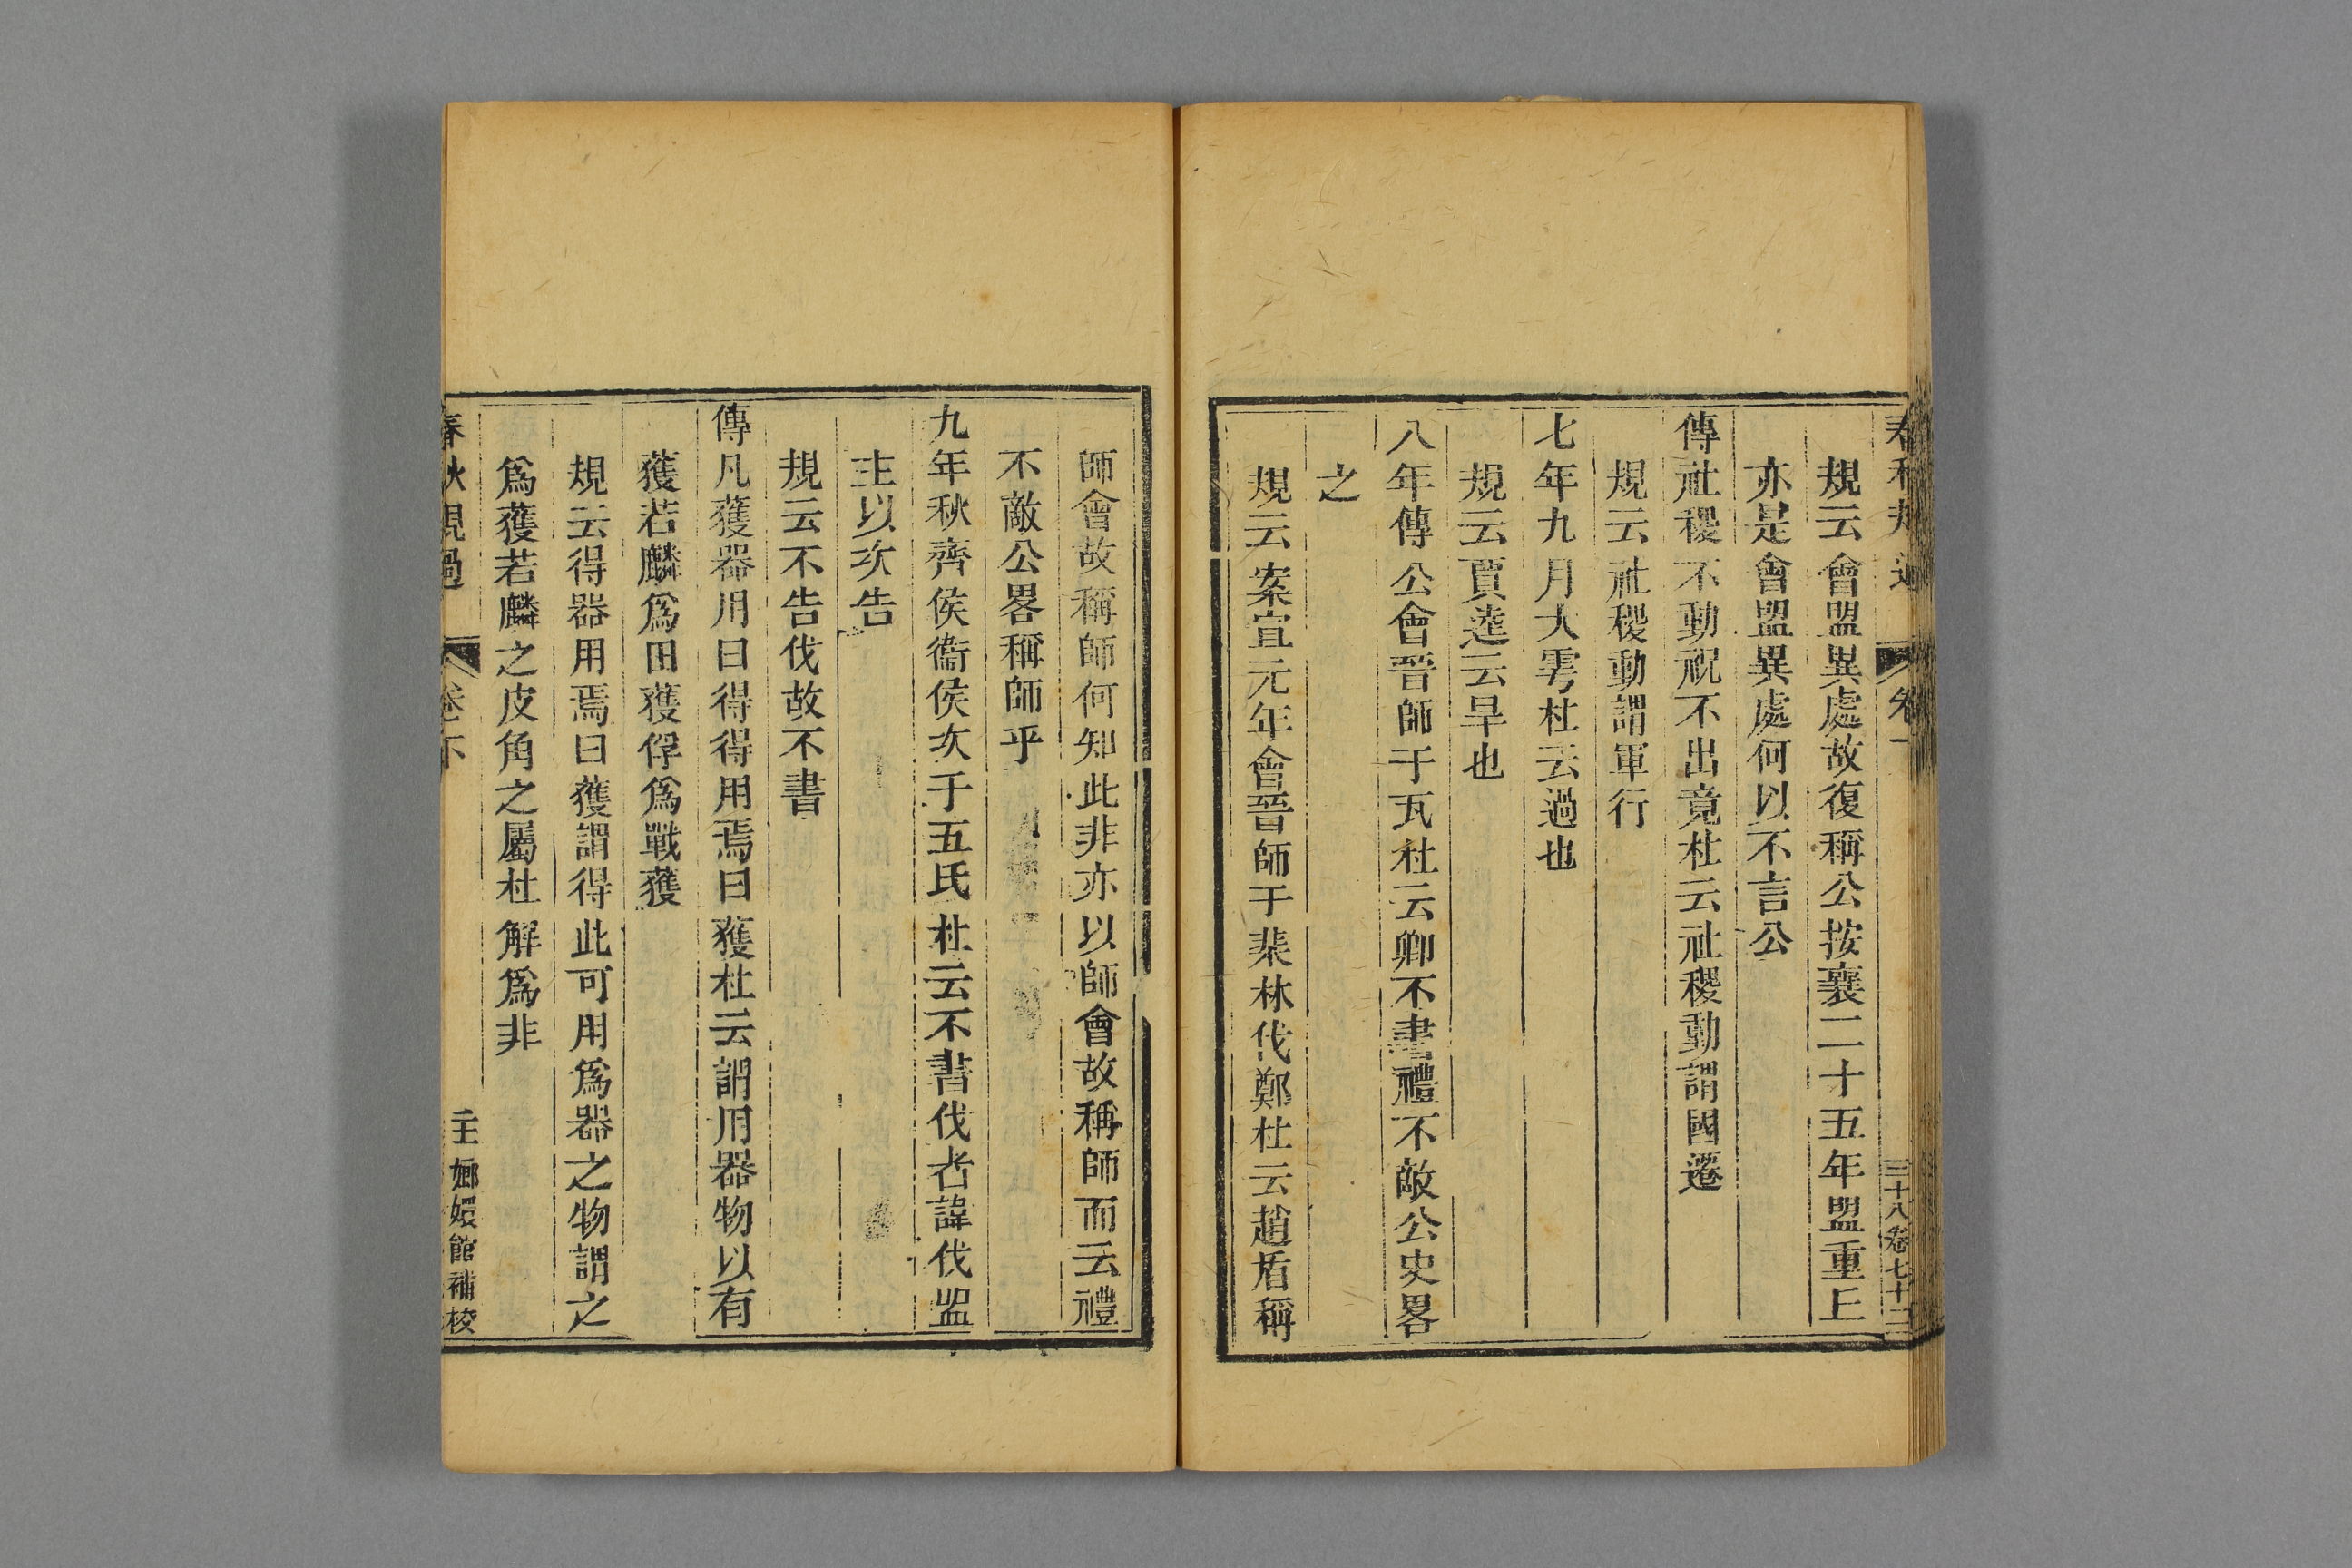 規云會盟異處故復稱公按襄二十五年盟重上
亦是會盟異處何以不言公
傳社稷不動祝不出竟杜云社稷動謂國遷
規云社稷動謂軍行
七年九月大雩杜云過也
規云賈逵云旱也
八年傳公會晉師于瓦杜云卿不書禮不敵公史畧
之
規云案宣元年會晉師于棐林伐鄭杜云趙盾稱
三十八卷七十二
師會故稱師何知此非亦以師會故稱師而云禮
不敵公畧稱師乎
九年秋齊侯衞侯次于五氏杜云不書伐者諱伐盟
主以次告
規云不告伐故不書
傳凡獲器用曰得得用焉曰獲杜云謂用器物以有
獲若麟爲田獲俘爲戰獲
規云得器用焉曰獲謂得此可用爲器之物謂之
爲獲若麟之皮角之屬杜解爲非
春秋規過 卷下 嫏嬛館補校